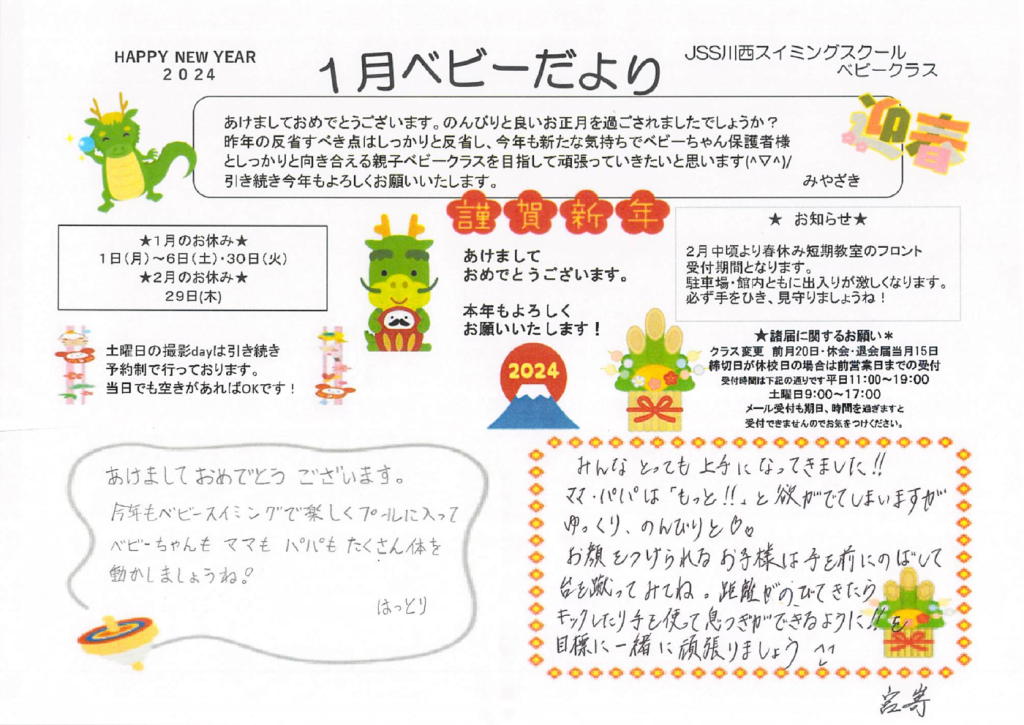 HAPPY NEW YEAR
2024
1月ベビーだより
JSS川西スイミングスクール
ベビークラス
あけましておめでとうございます。のんびりと良いお正月を過ごされましたでしょうか？
昨年の反省すべき点はしっかりと反省し、今年も新たな気持ちでベビーちゃん保護者様
としっかりと向き合える親子ベビークラスを目指して頑張っていきたいと思います(^▽^)/
引き続き今年もよろしくお願いいたします。
みやざき
迎春
謹賀新年
★1月のお休み★
1日(月)～6日(土)・30日(火)
★2月のお休み★
29日(木)
あけまして
おめでとうございます。
本年もよろしく
お願いいたします！
★ お知らせ★
2月中頃より春休み短期教室のフロント
受付期間となります。
駐車場・館内ともに出入りが激しくなります。
必ず手をひき、見守りましょうね！
土曜日の撮影dayは引き続き
予約制で行っております。
当日でも空きがあればOKです！
2024
★諸届に関するお願い＊
クラス変更 前月20日・休会・退会届当月15日
締切日が休校日の場合は前営業日までの受付
受付時間は下記の通りです平日11:00～19:00
土曜日9:00～17:00
メール受付も期日、時間を過ぎますと
受付できませんのでお気をつけください。
あけまして おめでとう ございます。
今年もベビースイミングで楽しくプールに入って
ベビーちゃんも ママも パパも たくさん体を
動かしましょうね!
はっとり
みんな とっても 上手に なってきました!!
ママ・パパは「もっと!!」と 欲がでてしまいますが
ゆっくり、のんびりと♡♡
お顔をつけられる お子様は 手を前にのばして
台を蹴ってみてね。距離がのびてきたら
キックしたり 手を使って 息つぎができるように!!を
目標に一緒に頑張りましょう ^^
宮嵜